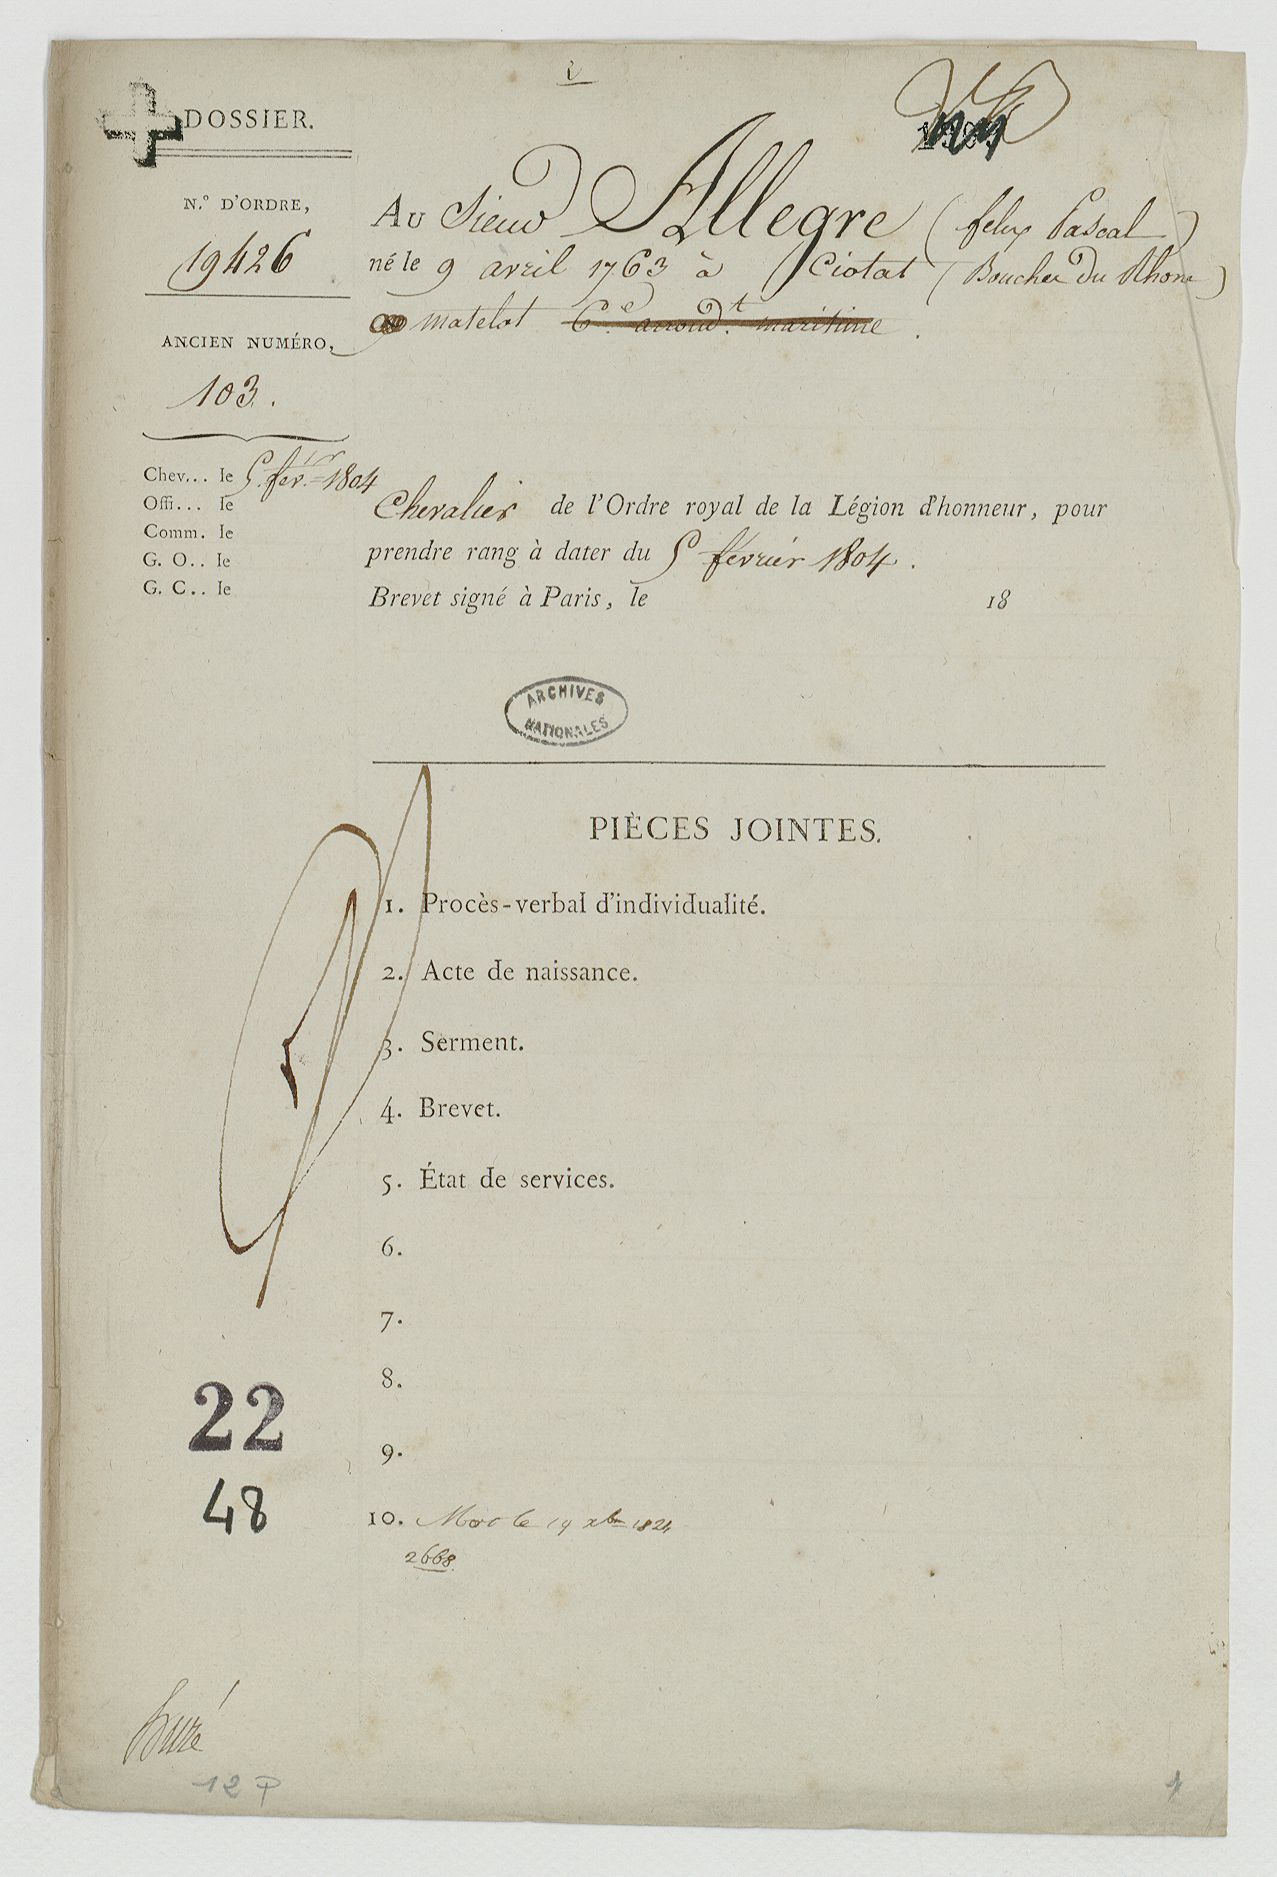 DOSSIER.
N.° D'ORDRE,
19426
ANCIEN NUMÉRO,
103.
Au Sieur Allegre (felix Pascal)
né le 9 avril 1763 à Ciotat (Bouches Du Rhone)
matelot 6.e arrond.t maritime.
Chev... le 5 fév.er 1804
Offi... le
Comm. le
G. O.. le
G. C.. le
Chevalier de l'Ordre royal de la Légion d'honneur, pour
prendre rang à dater du 5 février 1804.
Brevet signé à Paris, le 18
ARCHIVES
NATIONALES
PIÈCES JOINTES.
1. Procès-verbal d'individualité.
2. Acte de naissance.
3. Serment.
4. Brevet.
5. État de services.
6.
7.
8.
9.
10. Mort le 19 xbre 1824
2668
22
48
12 P